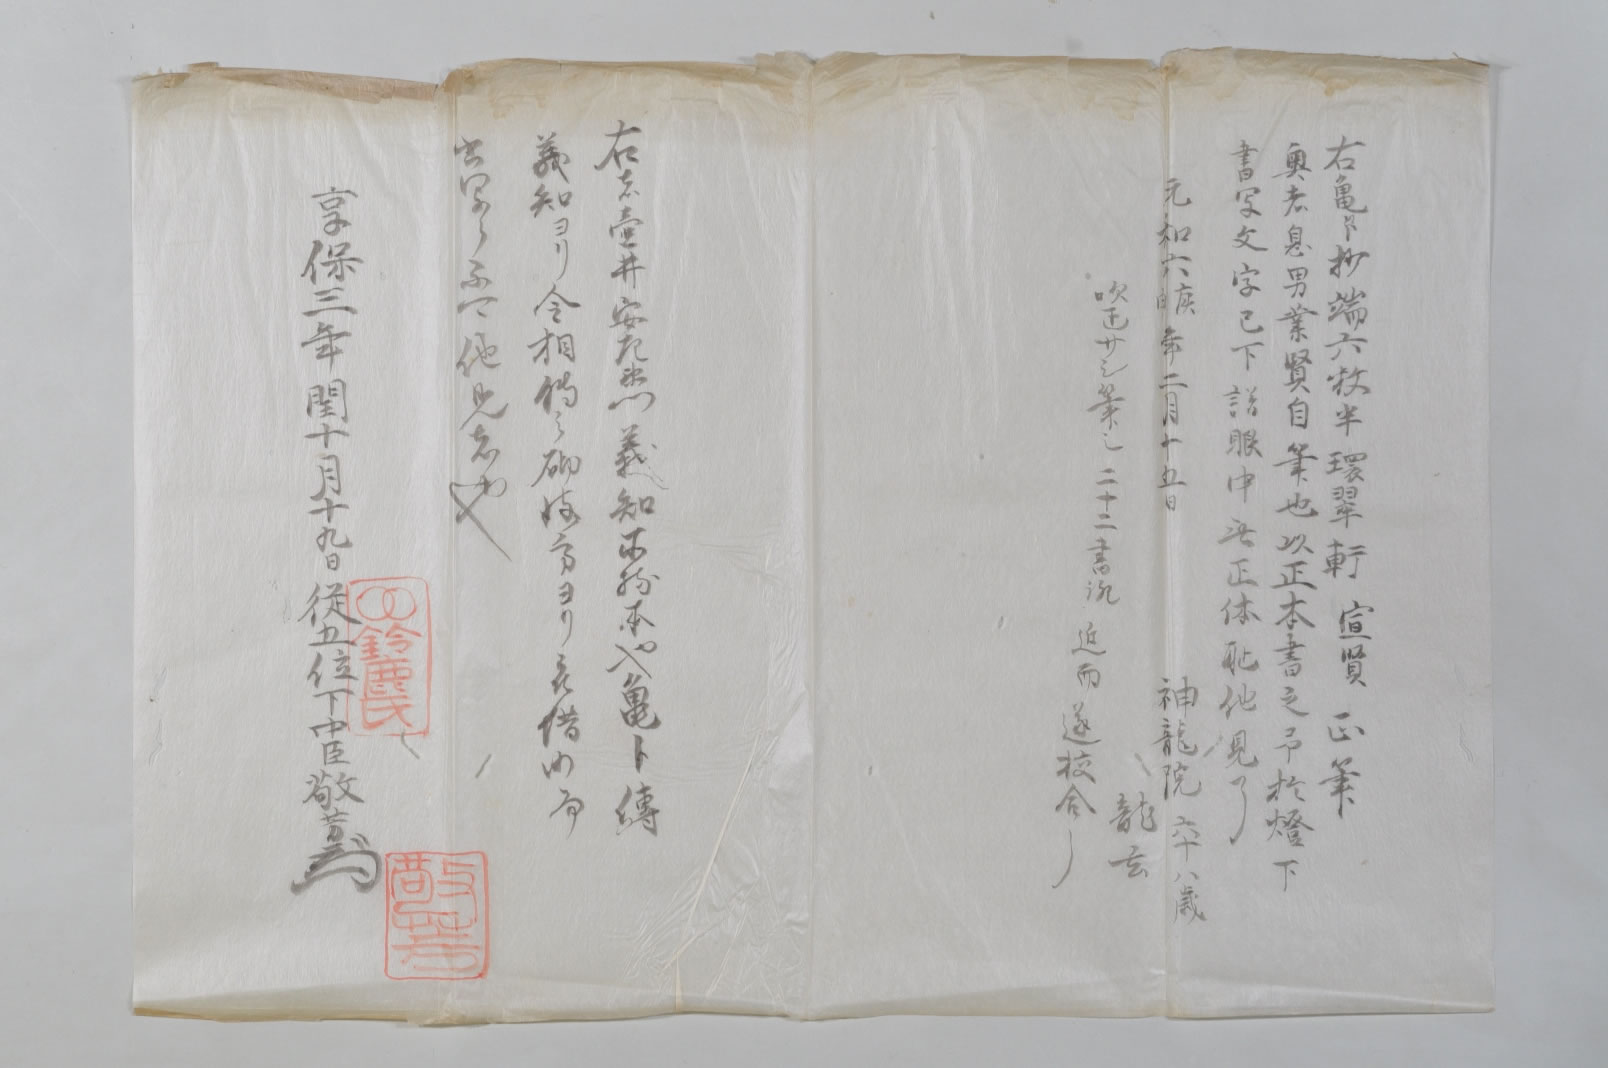 右亀卜抄端六枚半環翠軒 宣賢 正筆
奥者息男業賢自筆也以正本書之予於燈下
書写文字已下 眼中無正体恥他見了
元和六庚申年二月十五日 神龍院 六十八歳
龍玄
筆 二十二 近而遂校合了
右者壺井安左衛門義知所持本也亀卜傳
義知ヨリ令相傳之砌 方ヨリ 借 而
書写之不可他見者也
享保三年閏十月十九日従五位下中臣敬芳
鈴鹿氏
敬芳